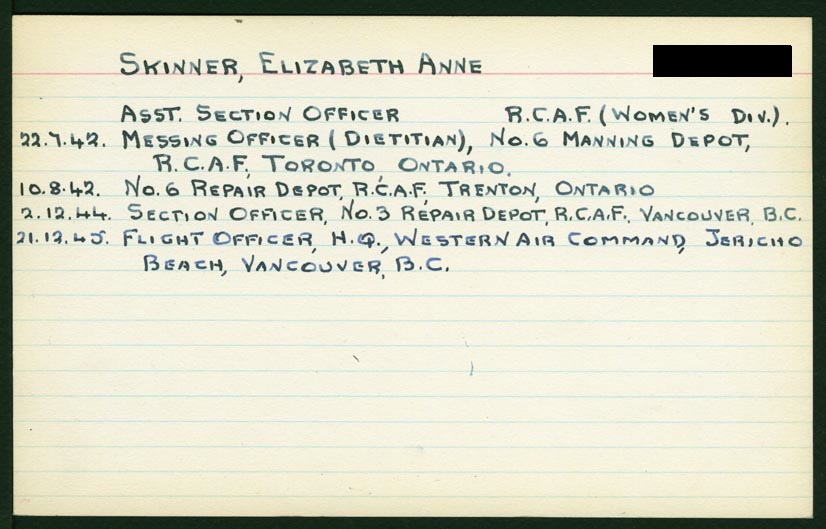 SKINNER, ELIZABETH ANNE
ASST. SECTION OFFICER R.C.A.F. (WOMEN'S DIV.).
22.7.42. MESSING OFFICER (DIETITIAN), NO. 6 MANNING DEPOT,
R.C.A.F., TORONTO, ONTARIO.
10.8.42. NO. 6 REPAIR DEPOT, R.C.A.F., TRENTON, ONTARIO
2.12.44. SECTION OFFICER, NO. 3 REPAIR DEPOT, R.C.A.F., VANCOUVER, B.C.
21.12.45. FLIGHT OFFICER, H.Q., WESTERN AIR COMMAND, JERICHO
BEACH, VANCOUVER, B.C.